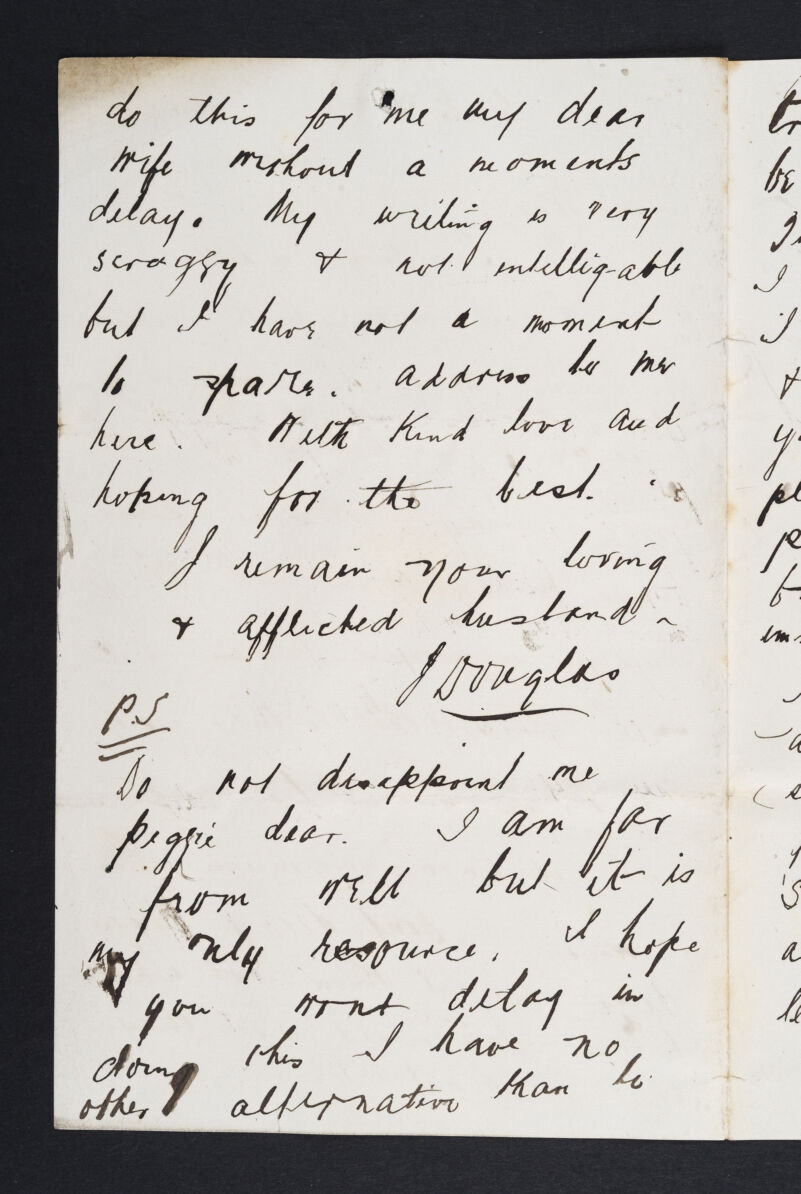 do this for me my dear
wife without a moments
delay. My writing is very
scraggy & not intelligable
but I have not a moment
to spare. address to me
here. With Kind love and
hoping for the best.
I remain your loving
& afflicted husband
J Douglas
P.S
Do not disappoint me
peggie dear. I am far
from well but it is
my only resource. I hope
you wont delay in
doing this I have no
other alternative than to